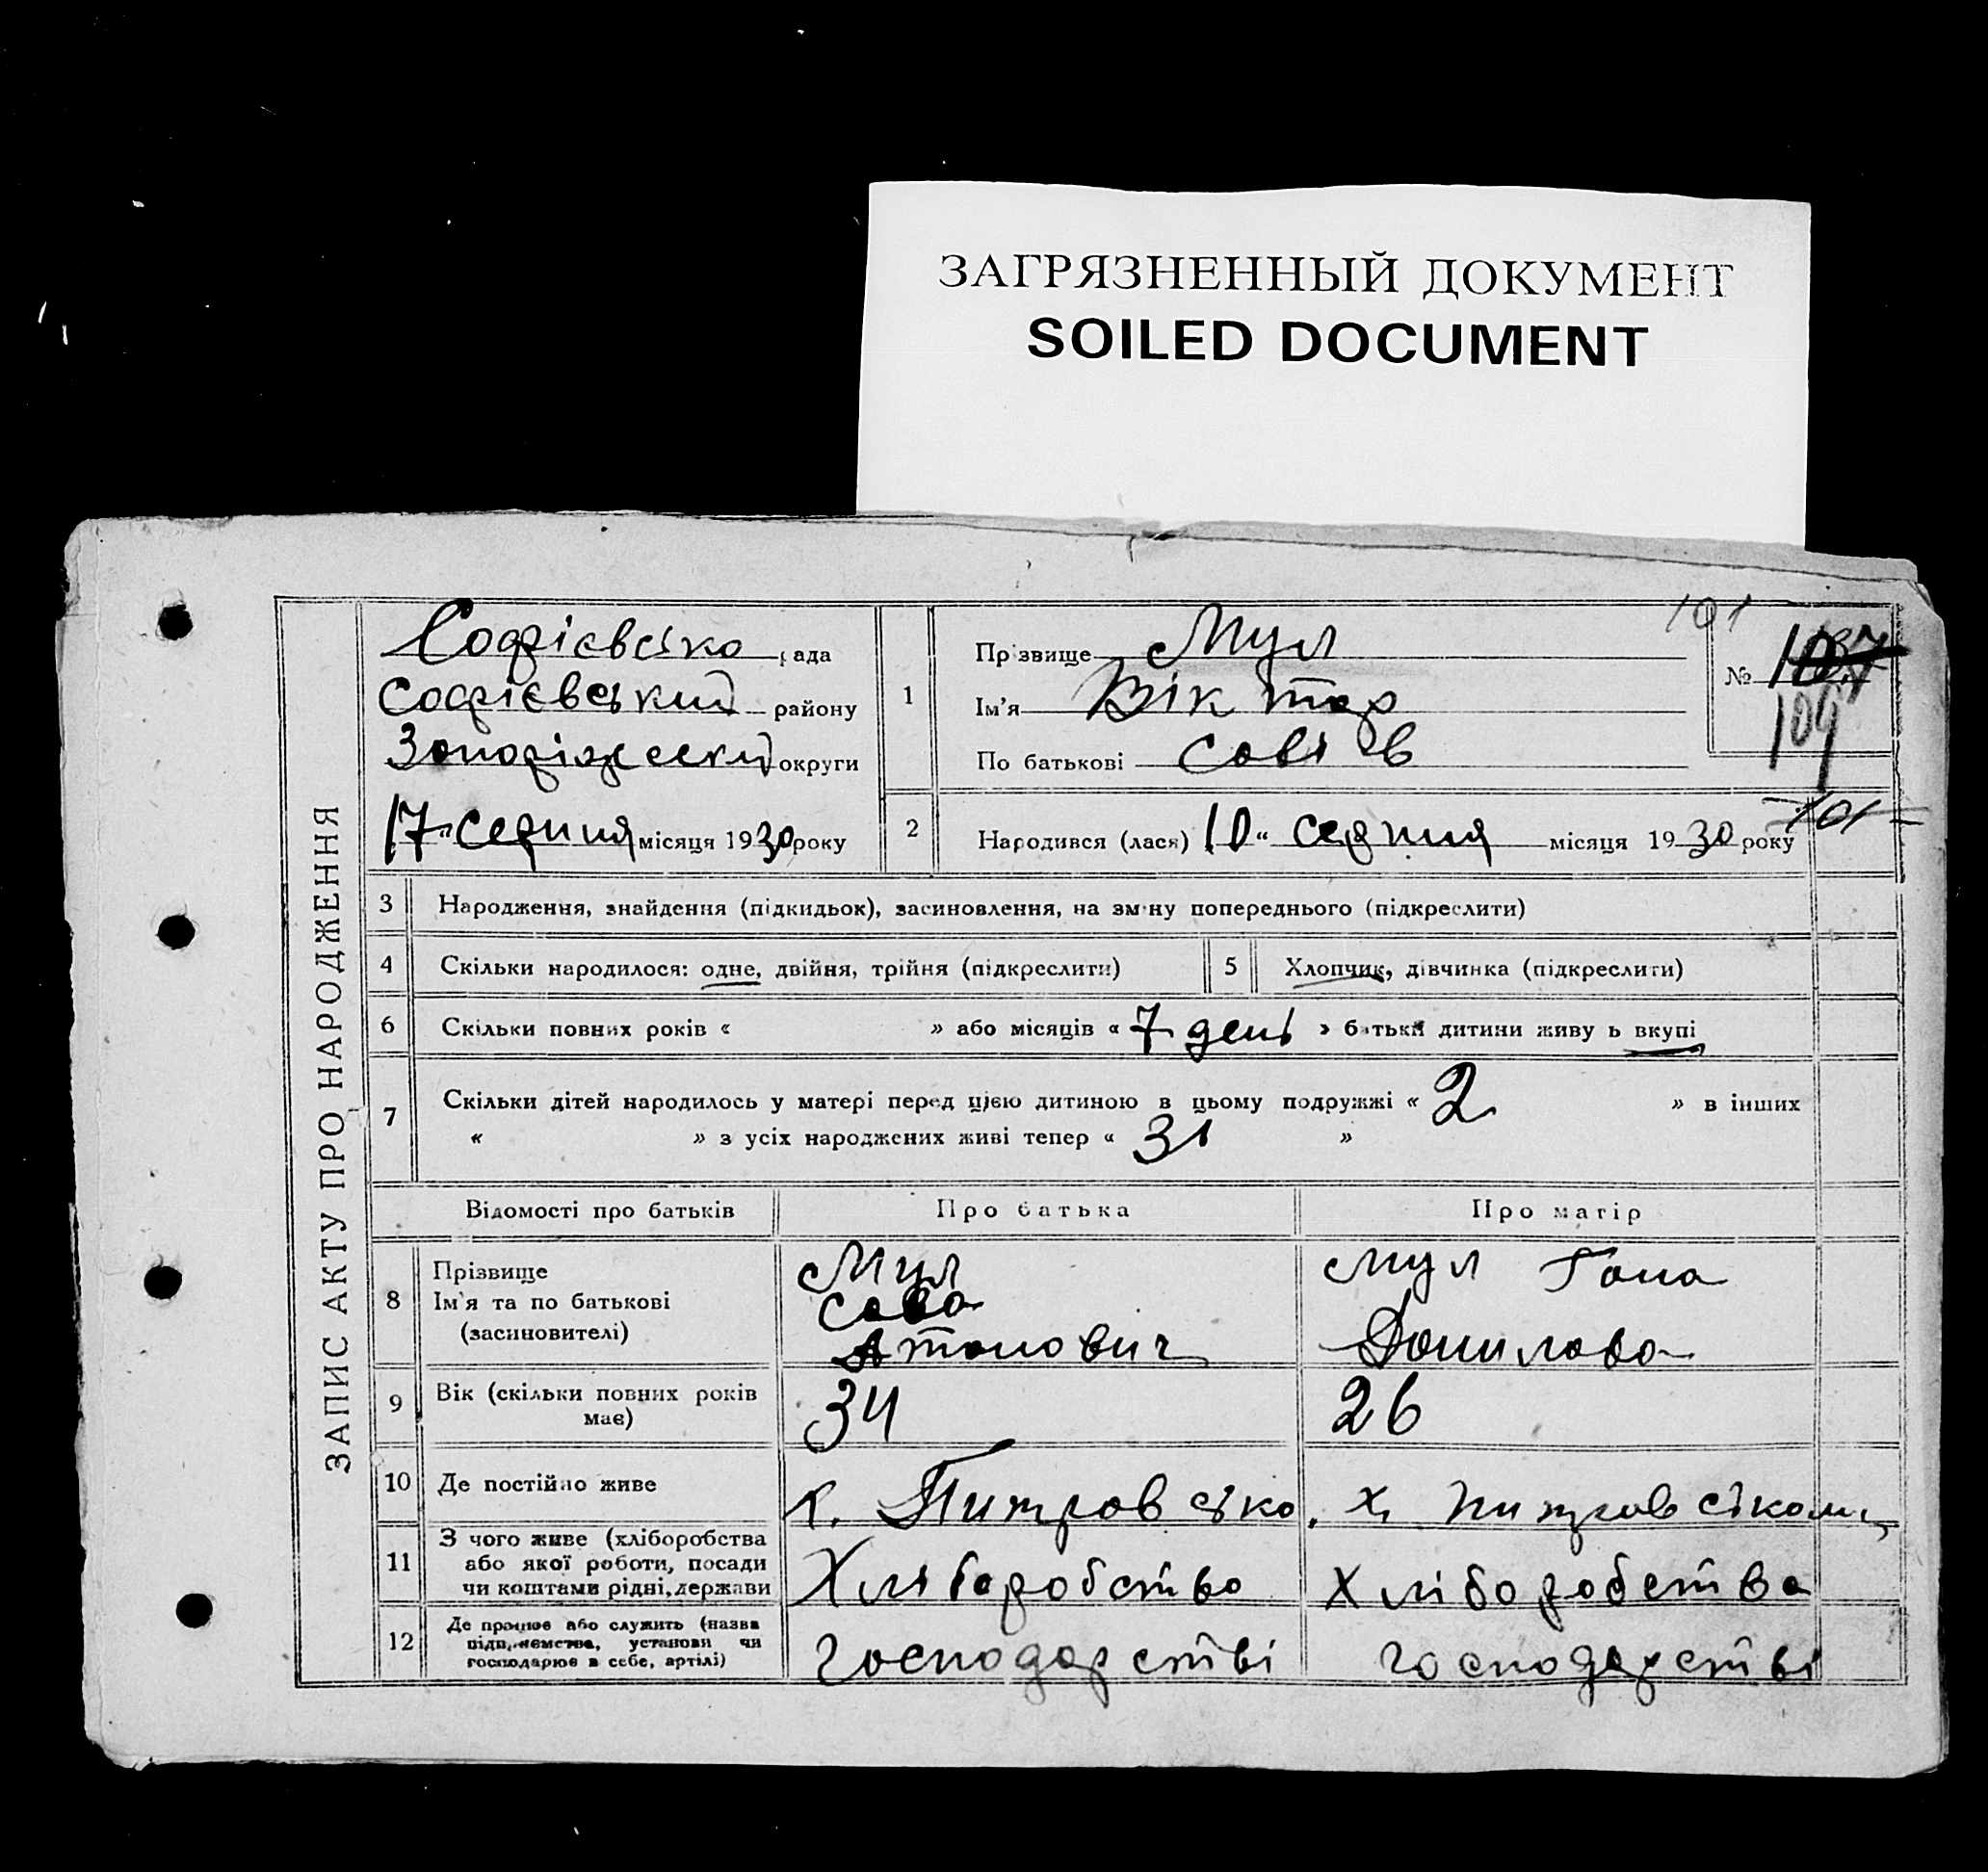 ЗАГРЯЗНЕННЫЙ ДОКУМЕНТ
SOILED DOCUMENT
ЗАПИС АКТУ ПРО НАРОДЖЕННЯ
Софієвсько рада
Софієвський району
Запоріжський округи
17 " серпня місяця 1930 року
1
Прізвище Мул
Ім'я Віктор
По батькові Саві в
101
№ 107
109
101
2 Народився (лася) 10 " серпня місяця 1930 року
3 Народження, знайдення (підкидьок), засиновлення, на зміну попереднього (підкреслити)
4 Скільки народилося: одне, двійня, трійня (підкреслити) 5 Хлопчик, дівчинка (підкреслити)
6 Скільки повних років « » або місяців « 7 дені » батьки дитини живу ь вкупі
7 Скільки дітей народилось у матері перед цією дитиною в цьому подружжі « 2 » в інших
« » з усіх народжених живі тепер « 3 »
Відомості про батьків Про батька Про матір
8 Прізвище Мул Мул Гана
Ім'я та по батькові Сава
(засиновителі) Атонович Данилова
9 Вік (скільки повних років має) 34 26
10 Де постійно живе х. Питровсько. х. Питровськом
11 З чого живе (хліборобства
або якої роботи, посади
чи коштами рідні, держави Хліборобство Хліборобства
12 Де працює або служить (назва
підприємства, установи чи
господарює в себе, артілі) господарстві господарстві